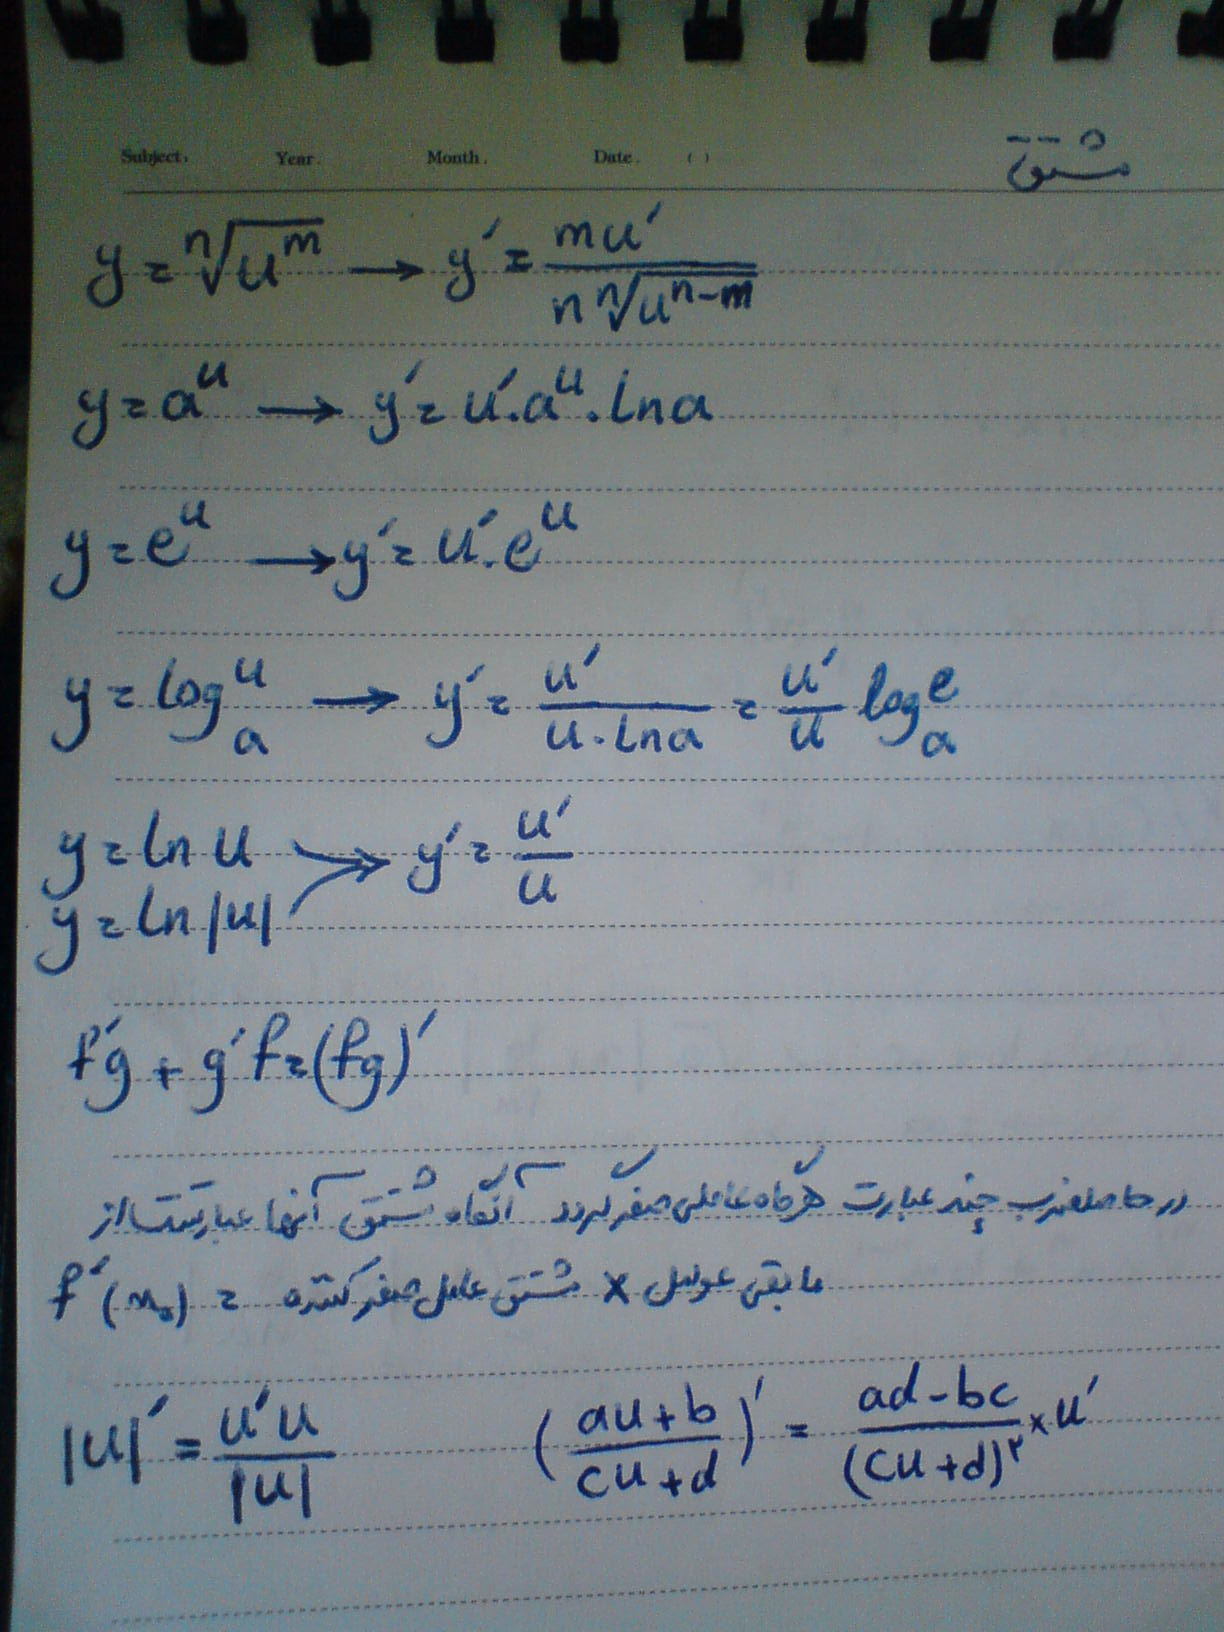 Subject. Year. Month. Date. ( )
مشتق
y = ⁿ√(uᵐ) → y′ = mu′ / (n ⁿ√(uⁿ⁻ᵐ))
y = aᵘ → y′ = u′.aᵘ.lna
y = eᵘ → y′ = u′.eᵘ
y = logₐᵘ → y′ = u′ / (u.lna) = u′/u logₐᵉ
y = ln u → y′ = u′/u
y = ln |u|
f′g + g′f = (fg)′
در حاصلضرب چند عبارت هرگاه عاملی صفر گردد آنگاه مشتق آنها عبارتست از
f′(x₀) = مشتق عامل صفر کننده × مابقی عوامل
|u|′ = u′u / |u| ((au+b)/(cu+d))′ = (ad-bc)/(cu+d)^۲ × u′